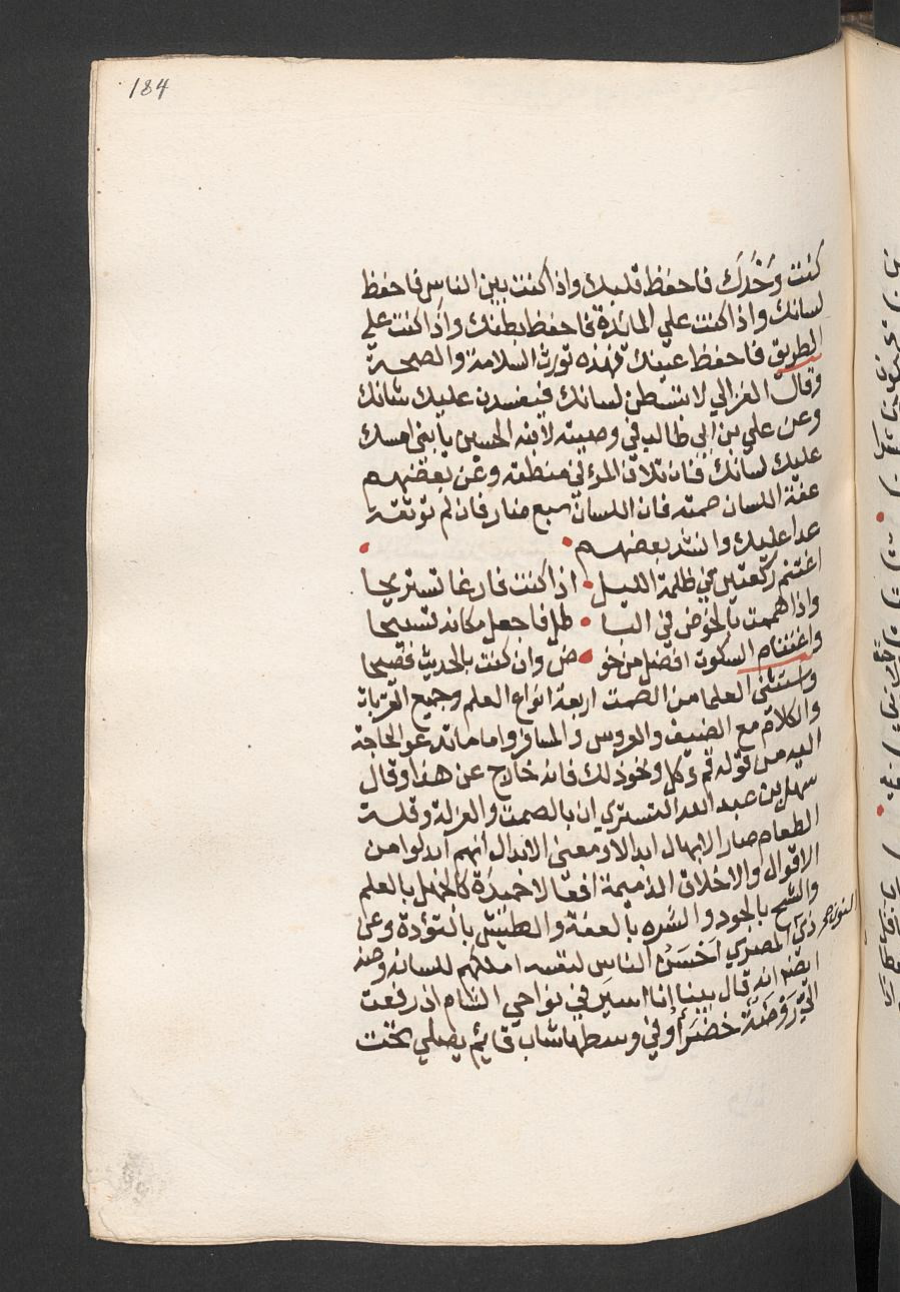 184
كنت وَحْدَك فاحفظ قلبك واذا كنت بين الناس فاحفظ
لسانك واذا كنت علي المائدة فاحفظ بطنك واذا كنت علي
الطريق فاحفظ عينك فهذه تورث السلامة والصحة
وقال الغزالي لا تبسطن لسانك فيفسدن عليك شانك
وعن علي بن ابي طالب في وصيته لابنه الحسين يا بني امسك
عليك لسانك فان تلاف المرء في منطقه وعن بعضهم
عفة اللسان صمته فان اللسان سبع ضار فان لم توثقه
عدا عليك وانشد بعضهم
اغتنم ركعتين في ظلمة الليل اذا كنت فارغا تستريحا
واذا هممت بالخوض في البا طل فاجعل مكانه تسبيحا
واغتنام السكوت افضل من خو ض وان كنت بالحديث فصيحا
واستثني العلما من الصمت اربعة انواع العلم وجميع القربات
والكلام مع الضيف والعروس والمسافر واما ما تدعو الحاجة
اليه من قوله قم وكل ونحو ذلك فانه خارج عن هذا وقال
سهل بن عبد الله التستري ان بالصمت والعزلة وقلة
الطعام صار الابدال ابدالا ومعني الابدال انهم ابدلوا من
الاقوال والاخلاق الذميمة افعالا حميدة كالجهل بالعلم
والشح بالجود والشره بالعفة والطيش بالتؤدة وعن
ذي المصري احسن الناس لنفسه املكهم للسانه وعنه
النون
ايضا انه قال بينا انا اسير في نواحي الشام اذ رفعت
الي رَوْضَة خضرا وفي وسطها شاب قايم يصلي تحت